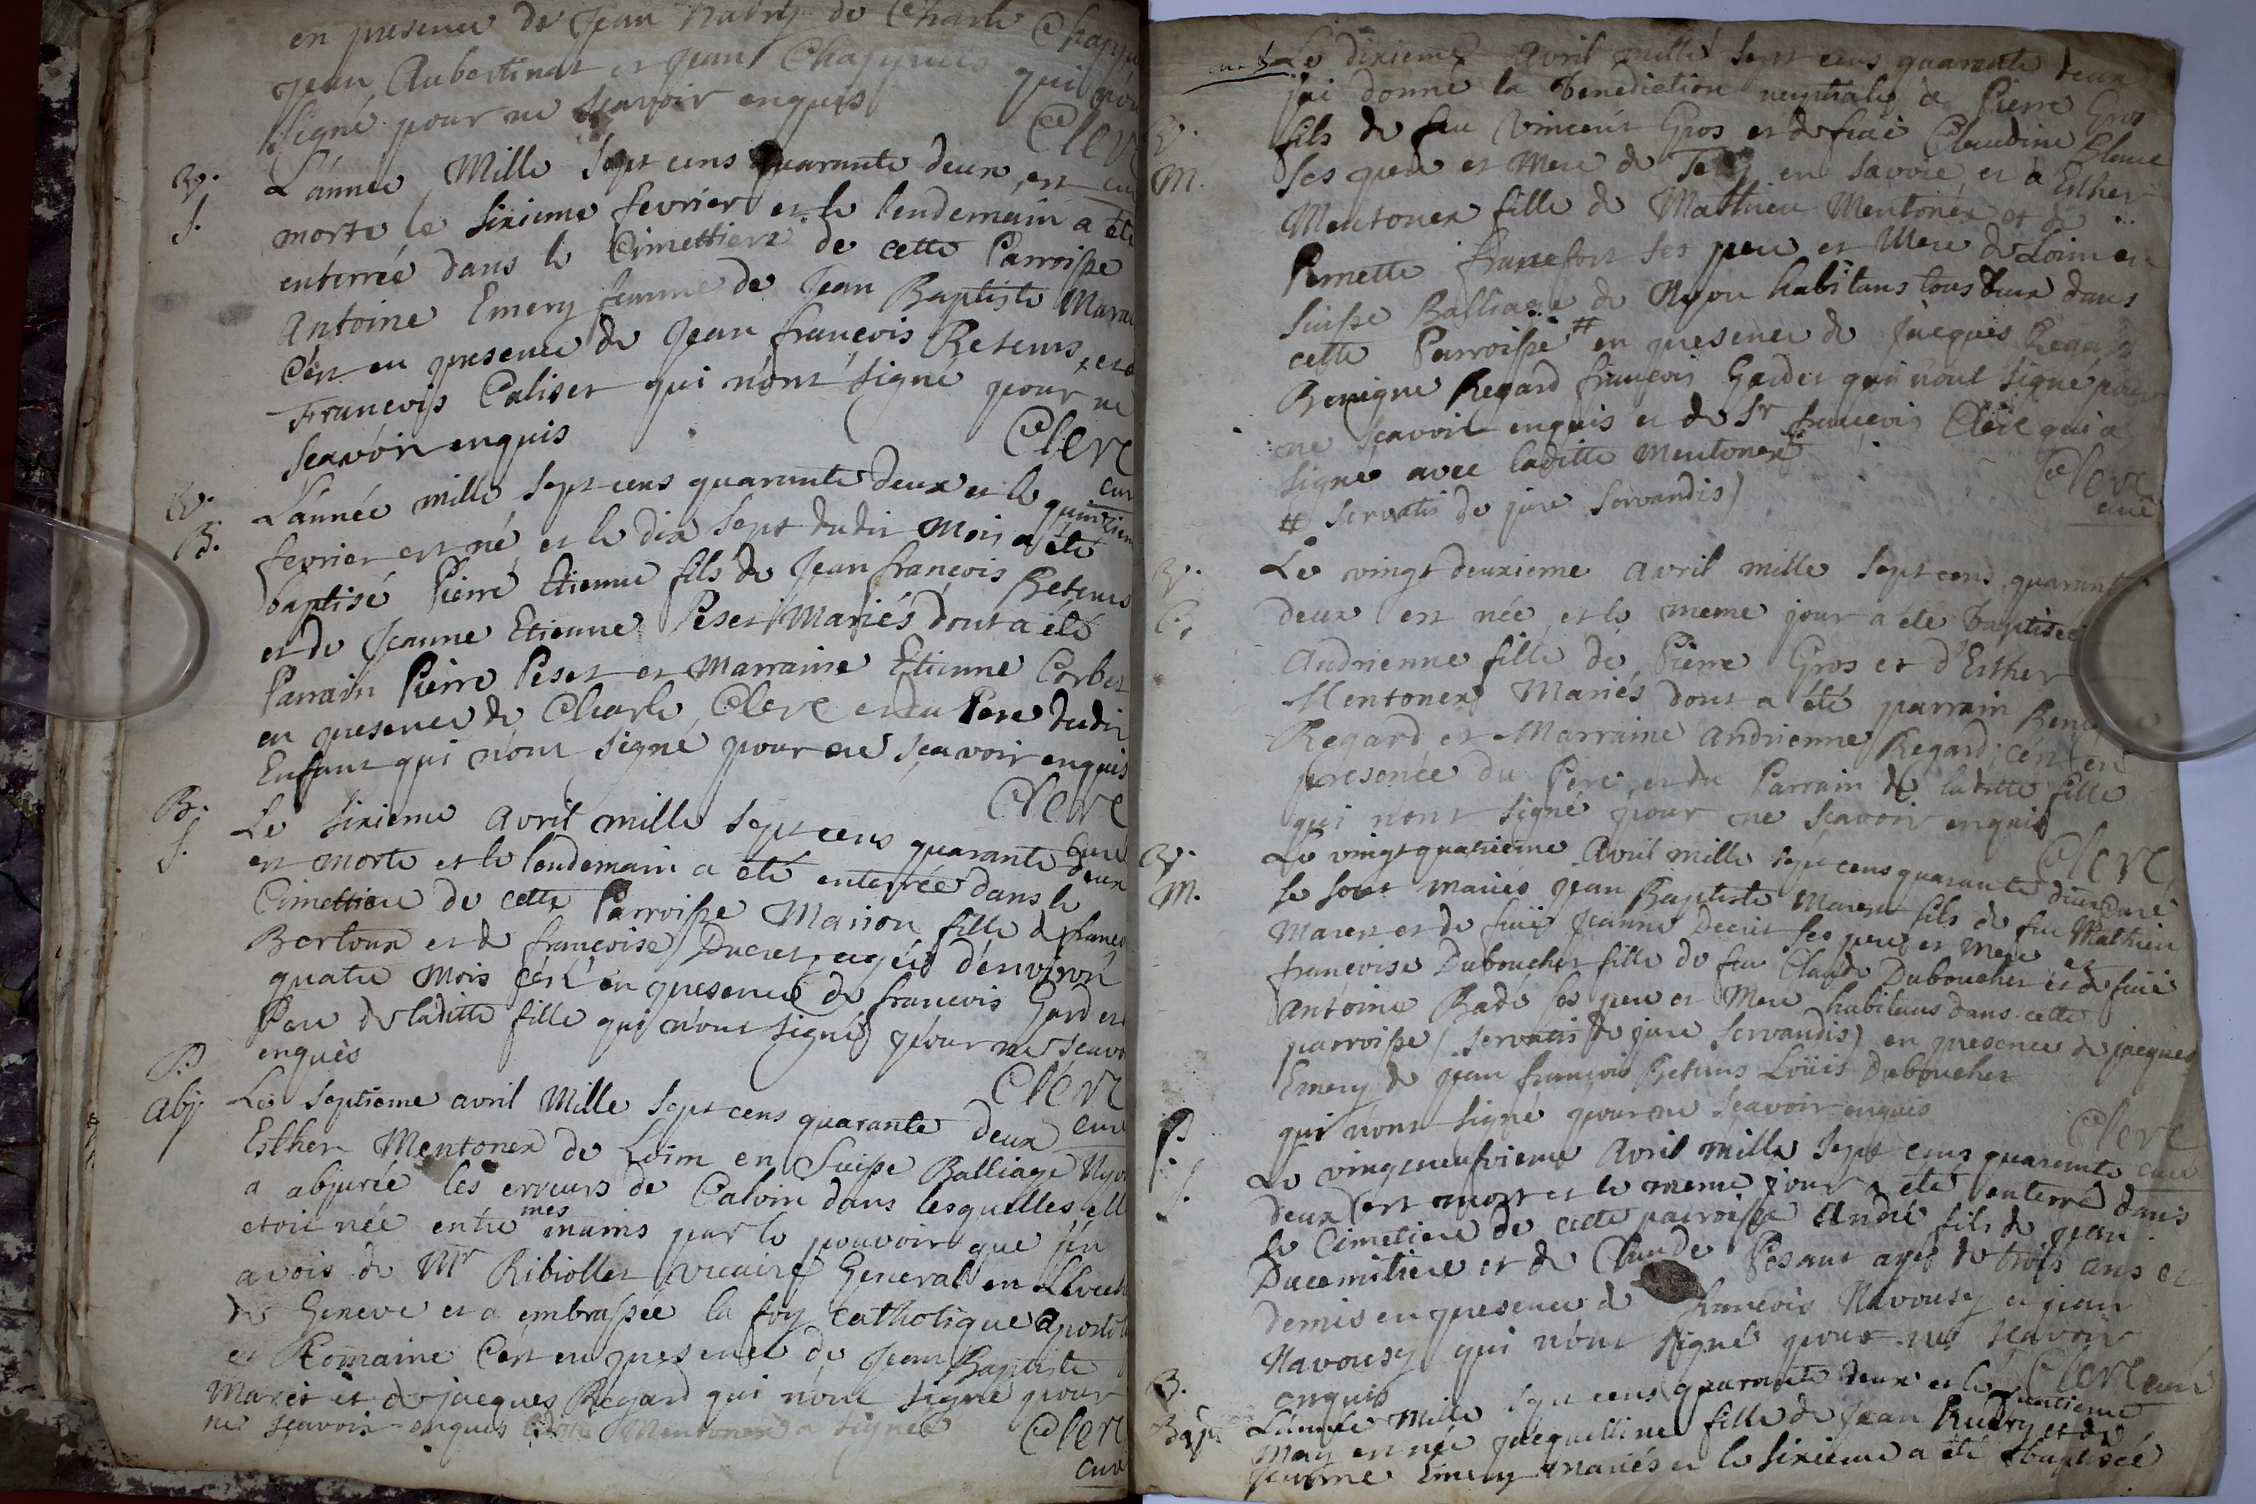 en presence de Jean Nadry de Charle Chappu
Jean Aubertinat et Jean Chappuis qui n'on
signé pour ne scavoir enquis
Clerc
B.
S.
L'année Mille sept cens quarante deux est
morte le sixieme fevrier et le lendemain a été
enterrée dans le Cimettiere de cette Parroisse
Antoine Emery femme de Jean Baptiste Mara
C'est en presence de Jean francois Retems et de
Francois Caliset qui n'ont signé pour ne
scavoir enquis
Clerc
cur
B.
B.
L'année mille sept cens quarante deux et le quinziem
fevrier est né et le dix sept dudit Mois a été
baptisé Pierre Etienne fils de Jean francois Retems
et de Jeanne Etienne Peset Mariés dont a été
Parrain Pierre Peset et Marraine Etienne Corbet
en presence de Charle Clerc et du Pere dudit
Enfant qui n'ont signé pour ne scavoir enquis
Clerc
Curé
B.
S.
Le sixieme avril mille sept cens quarante deux
est morte et le lendemain a été enterrée dans le
Cimettiere de cette Parroisse Marion fille de franco
Bertoux et de francoise Ducret agée d'environ
quatre Mois c'est en presence de francois Gard et
Pere de laditte fille qui n'ont signé pour ne scavo
enquis
Clerc
cure
P.
abj.
Le septieme avril Mille sept cens quarante deux
Esther Mentonex de Loim en Suisse Balliage Nyo
a abjurée les erreurs de Calvin dans lesquelles elle
etoit née entre mes mains par le pouvoir que j'en
avois de Mr Ribiollet vicaire General en L'evech
de Geneve et a embrassée la foy Catholique Apostol
et Romaine C'est en presence de Jean Baptiste
Maret et de jacques Regard qui n'ont signé pour
ne scavoir enquis laditte Mentonex a signée
Clerc
curé
B.
M.
Le dixieme avril mille sept cens quarante deux
j'ai donné la benediction nuptiale à Pierre Gros
fils de feu Vincent Gros et de fuë Claudine Blanc
ses pere et Mere de en Savoie et à Esther
Mentonex fille de Mathieu Mentonex et de
Pernette francfort ses pere et Mere de Loim en
Suisse Balliage de Nyon habitans tous deux dans
cette Parroisse # en presence de jacques Regard
Benigne Regard françois Gardet qui n'ont signé pour
ne scavoir enquis et de Sr francois Clerc qui a
signé avec laditte Mentonex
# servatis de jure servandis)
Clerc
curé
B.
B.
Le vingt deuxieme avril mille sept cens quarante
deux est née et le meme jour a été baptisée
Andrienne fille de Pierre Gros et d'Esther
Mentonex Mariés dont a été parrain Benigne
Regard et Marraine Andrienne Regard, c'est en
presence du Pere et du Parrain de laditte fille
qui n'ont signé pour ne scavoir enquis
Clerc
Curé
B.
M.
Le vingtquatrieme Avril mille sept cens quarante deux
se sont mariés Jean Baptiste Maret fils de feu Mathieu
Maret et de fuë Jeanne Decrit ses pere et Mere et
françoise Duboucher fille de feu Claude Duboucher et de fuë
Antoine Badé ses pere et Mere habitans dans cette
parroisse (servatis de jure servandis) en presence de jacques
Emery de Jean francois Retems Loüis Duboucher
qui n'ont signé pour ne scavoir enquis
Clerc
cure
P.
S.
Le vingtneufvieme Avril mille sept cens quarante
deux est mort et le meme jour a été enterré dans
le Cimetiere de cette parroisse André fils de Jean
Ducemitiere et de Claude Pesant agé de trois ans et
demis en presence de francois Navousy et jean
Navousy qui n'ont signé pour ne scavoir
enquis
Clerc curé
B.
Bapt.
L'année Mille sept cens quarante deux et le
May est née jacquelline fille de Jean Rudry et de
jeanne Emery mariés et le sixieme a été baptisée